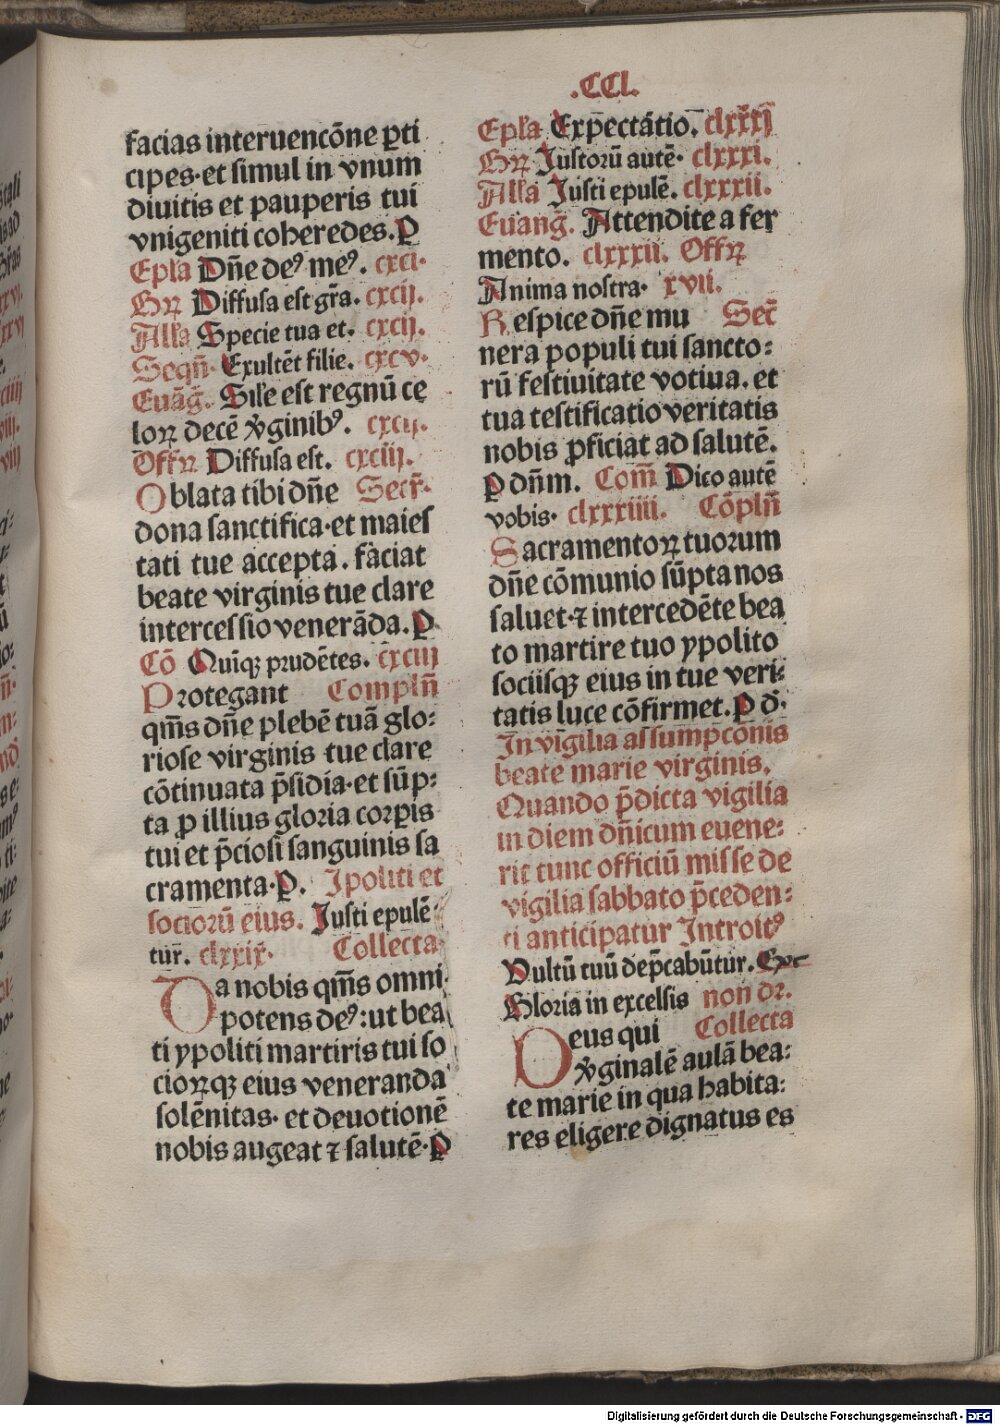 .CCl.
facias interuencōne ꝑti
cipes·et simul in vnum
diuitis et pauperis tui
vnigeniti coheredes. P
Epl̄a Dn̄e de⁹ me⁹. cxci·
Gꝝ Diffusa est gr̄a. cxcij.
All̄a Specie tua et. cxcij.
Seqn̄· Exultēt filie. cxcv·
Euāg̃. Sil̄e est regnū ce
loꝝ decē v̄ginib⁹. cxcij.
Offꝝ Diffusa est. cxciij.
Oblata tibi dn̄e Secr̄·
dona sanctifica·et maies
tati tue accepta. faciat
beate virginis tue clare
intercessio venerāda. P
Cō Quīqꝫ prudētes. cxciij
Protegant Compln̄
qm̄s dn̄e plebē tuā glo:
riose virginis tue clare
cōtinuata p̄sidia·et sūp:
ta ꝑ illius gloria corꝑis
tui et p̄ciosi sanguinis sa
cramenta·P. Ipoliti et
sociorū eius. Iusti epulē
tur̄. clxxix· Collecta
Da nobis qm̄s omni
potens de⁹: ut bea
ti ypoliti martiris tui so
cioꝝqꝫ eius veneranda
solēnitas· et deuotionē
nobis augeat ⁊ salutē·P
Epl̄a Expectatio. clxxxj
Gꝝ Iustorū autē· clxxxi.
All̄a Iusti epulē. clxxxii.
Euang̃. Attendite a fer
mento. clxxxii. Offꝝ
Anima nostra· xvii.
Respice dn̄e mu Sec̄
nera populi tui sancto:
rū festiuitate votiua. et
tua testificatio veritatis
nobis ꝓficiat ad salutē.
P dn̄m. Com̄ Dico autē
vobis· clxxxiiii. Cōpln̄
Sacramentoꝝ tuorum
dn̄e cōmunio sūpta nos
saluet·⁊ intercedēte bea
to martire tuo ypolito
sociisqꝫ eius in tue veri:
tatis luce cōfirmet. P d̄·
In vigilia assumpcōnis
beate marie virginis.
Quando p̄dicta vigilia
in diem dn̄icum euene:
rit tunc officiū misse de
vigilia sabbato p̄ceden:
ti anticipatur Introit⁹
Vultū tuū dep̄cabūtur.
Gloria in excelsis non dr̄.
Deus qui Collecta
v̄ginalē aulā bea:
te marie in qua habita:
res eligere dignatus es
Digitalisierung gefördert durch die Deutsche Forschungsgemeinschaft - DFG